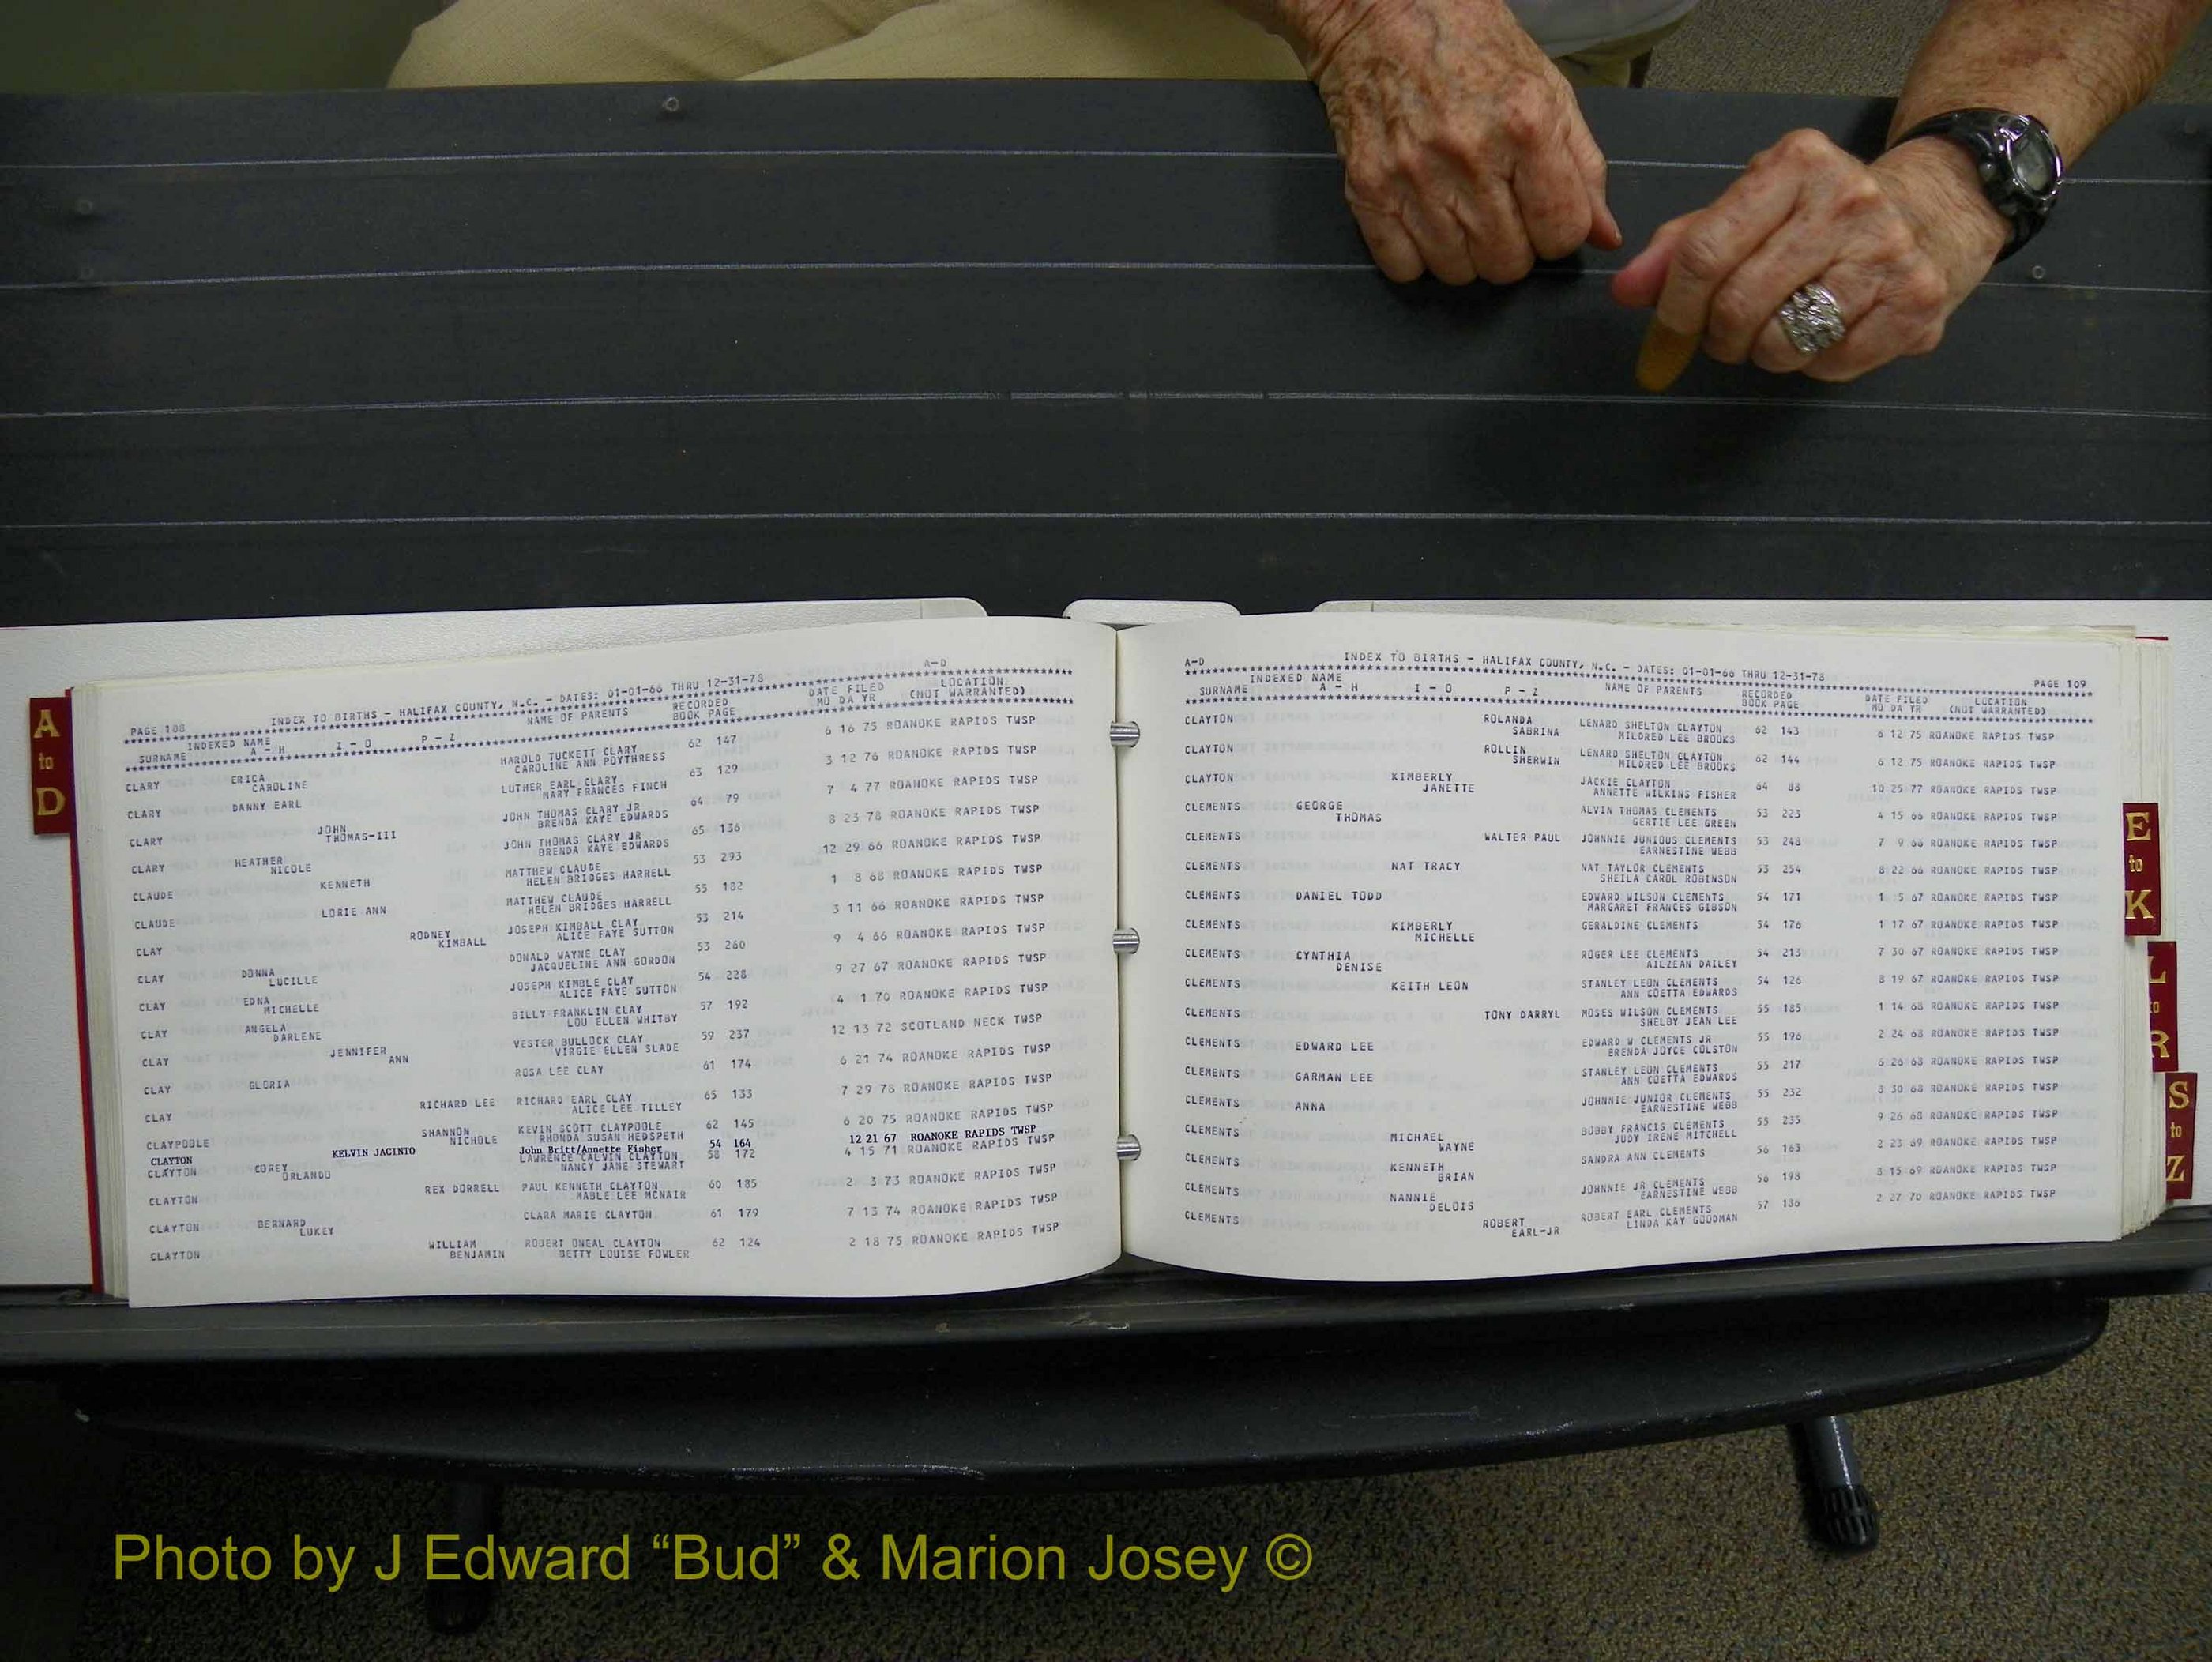 A to D
PAGE 108 INDEX TO BIRTHS - HALIFAX COUNTY, N.C. - DATES: 01-01-66 THRU 12-31-78 A-D
INDEXED NAME NAME OF PARENTS RECORDED DATE FILED LOCATION
SURNAME A - H I - O P - Z BOOK PAGE MO DA YR (NOT WARRANTED)
CLARY ERICA HAROLD TUCKETT CLARY 62 147 6 16 75 ROANOKE RAPIDS TWSP
CAROLINE CAROLINE ANN POYTHRESS
CLARY DANNY EARL LUTHER EARL CLARY 63 129 3 12 76 ROANOKE RAPIDS TWSP
MARY FRANCES FINCH
CLARY JOHN JOHN THOMAS CLARY JR 64 79 7 4 77 ROANOKE RAPIDS TWSP
THOMAS-III BRENDA KAYE EDWARDS
CLARY HEATHER JOHN THOMAS CLARY JR 65 136 8 23 78 ROANOKE RAPIDS TWSP
NICOLE BRENDA KAYE EDWARDS
CLAUDE KENNETH MATTHEW CLAUDE 53 293 12 29 66 ROANOKE RAPIDS TWSP
HELEN BRIDGES HARRELL
CLAUDE LORIE ANN MATTHEW CLAUDE 55 182 1 8 68 ROANOKE RAPIDS TWSP
HELEN BRIDGES HARRELL
CLAY RODNEY JOSEPH KIMBALL CLAY 53 214 3 11 66 ROANOKE RAPIDS TWSP
KIMBALL ALICE FAYE SUTTON
CLAY DONNA DONALD WAYNE CLAY 53 260 9 4 66 ROANOKE RAPIDS TWSP
LUCILLE JACQUELINE ANN GORDON
CLAY EDNA JOSEPH KIMBLE CLAY 54 228 9 27 67 ROANOKE RAPIDS TWSP
MICHELLE ALICE FAYE SUTTON
CLAY ANGELA BILLY FRANKLIN CLAY 57 192 4 1 70 ROANOKE RAPIDS TWSP
DARLENE LOU ELLEN WHITBY
CLAY JENNIFER VESTER BULLOCK CLAY 59 237 12 13 72 SCOTLAND NECK TWSP
ANN VIRGIE ELLEN SLADE
CLAY GLORIA ROSA LEE CLAY 61 174 6 21 74 ROANOKE RAPIDS TWSP
CLAY RICHARD LEE RICHARD EARL CLAY 65 133 7 29 78 ROANOKE RAPIDS TWSP
ALICE LEE TILLEY
CLAYPOOLE SHANNON KEVIN SCOTT CLAYPOOLE 62 145 6 20 75 ROANOKE RAPIDS TWSP
NICHOLE RHONDA SUSAN HEDSPETH
CLAYTON KELVIN JACINTO John Britt/Annette Fisher 54 164 12 21 67 ROANOKE RAPIDS TWSP
CLAYTON COREY LAWRENCE CALVIN CLAYTON 58 172 4 15 71 ROANOKE RAPIDS TWSP
ORLANDO NANCY JANE STEWART
CLAYTON REX DORRELL PAUL KENNETH CLAYTON 60 185 2 3 73 ROANOKE RAPIDS TWSP
MABLE LEE MCNAIR
CLAYTON BERNARD CLARA MARIE CLAYTON 61 179 7 13 74 ROANOKE RAPIDS TWSP
LUKEY
CLAYTON WILLIAM ROBERT ONEAL CLAYTON 62 124 2 18 75 ROANOKE RAPIDS TWSP
BENJAMIN BETTY LOUISE FOWLER
A-D INDEX TO BIRTHS - HALIFAX COUNTY, N.C. - DATES: 01-01-66 THRU 12-31-78 PAGE 109
INDEXED NAME NAME OF PARENTS RECORDED DATE FILED LOCATION
SURNAME A - H I - O P - Z BOOK PAGE MO DA YR (NOT WARRANTED)
CLAYTON ROLANDA LENARD SHELTON CLAYTON 62 143 6 12 75 ROANOKE RAPIDS TWSP
SABRINA MILDRED LEE BROOKS
CLAYTON ROLLIN LENARD SHELTON CLAYTON 62 144 6 12 75 ROANOKE RAPIDS TWSP
SHERWIN MILDRED LEE BROOKS
CLAYTON KIMBERLY JACKIE CLAYTON 64 88 10 25 77 ROANOKE RAPIDS TWSP
JANETTE ANNETTE WILKINS FISHER
CLEMENTS GEORGE ALVIN THOMAS CLEMENTS 53 223 4 15 66 ROANOKE RAPIDS TWSP
THOMAS GERTIE LEE GREEN
CLEMENTS WALTER PAUL JOHNNIE JUNIOUS CLEMENTS 53 248 7 9 66 ROANOKE RAPIDS TWSP
EARNESTINE WEBB
CLEMENTS NAT TRACY NAT TAYLOR CLEMENTS 53 254 8 22 66 ROANOKE RAPIDS TWSP
SHEILA CAROL ROBINSON
CLEMENTS DANIEL TODD EDWARD WILSON CLEMENTS 54 171 1 5 67 ROANOKE RAPIDS TWSP
MARGARET FRANCES GIBSON
CLEMENTS KIMBERLY GERALDINE CLEMENTS 54 176 1 17 67 ROANOKE RAPIDS TWSP
MICHELLE
CLEMENTS CYNTHIA ROGER LEE CLEMENTS 54 213 7 30 67 ROANOKE RAPIDS TWSP
DENISE AILZEAN DAILEY
CLEMENTS KEITH LEON STANLEY LEON CLEMENTS 54 126 8 19 67 ROANOKE RAPIDS TWSP
ANN COETTA EDWARDS
CLEMENTS TONY DARRYL MOSES WILSON CLEMENTS 55 185 1 14 68 ROANOKE RAPIDS TWSP
SHELBY JEAN LEE
CLEMENTS EDWARD LEE EDWARD W CLEMENTS JR 55 196 2 24 68 ROANOKE RAPIDS TWSP
BRENDA JOYCE COLSTON
CLEMENTS GARMAN LEE STANLEY LEON CLEMENTS 55 217 6 26 68 ROANOKE RAPIDS TWSP
ANN COETTA EDWARDS
CLEMENTS ANNA JOHNNIE JUNIOR CLEMENTS 55 232 8 30 68 ROANOKE RAPIDS TWSP
EARNESTINE WEBB
CLEMENTS MICHAEL BOBBY FRANCIS CLEMENTS 55 235 9 26 68 ROANOKE RAPIDS TWSP
WAYNE JUDY IRENE MITCHELL
CLEMENTS KENNETH SANDRA ANN CLEMENTS 56 163 2 23 69 ROANOKE RAPIDS TWSP
BRIAN
CLEMENTS NANNIE JOHNNIE JR CLEMENTS 56 198 8 15 69 ROANOKE RAPIDS TWSP
DELOIS EARNESTINE WEBB
CLEMENTS ROBERT ROBERT EARL CLEMENTS 57 186 2 27 70 ROANOKE RAPIDS TWSP
EARL-JR LINDA KAY GOODMAN
E to K
L to R
S to Z
Photo by J Edward “Bud” & Marion Josey ©